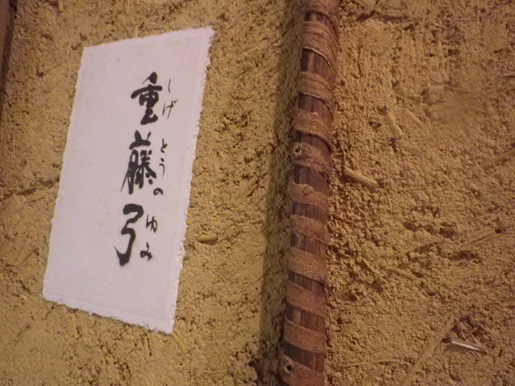 重藤弓
しげとうのゆみ